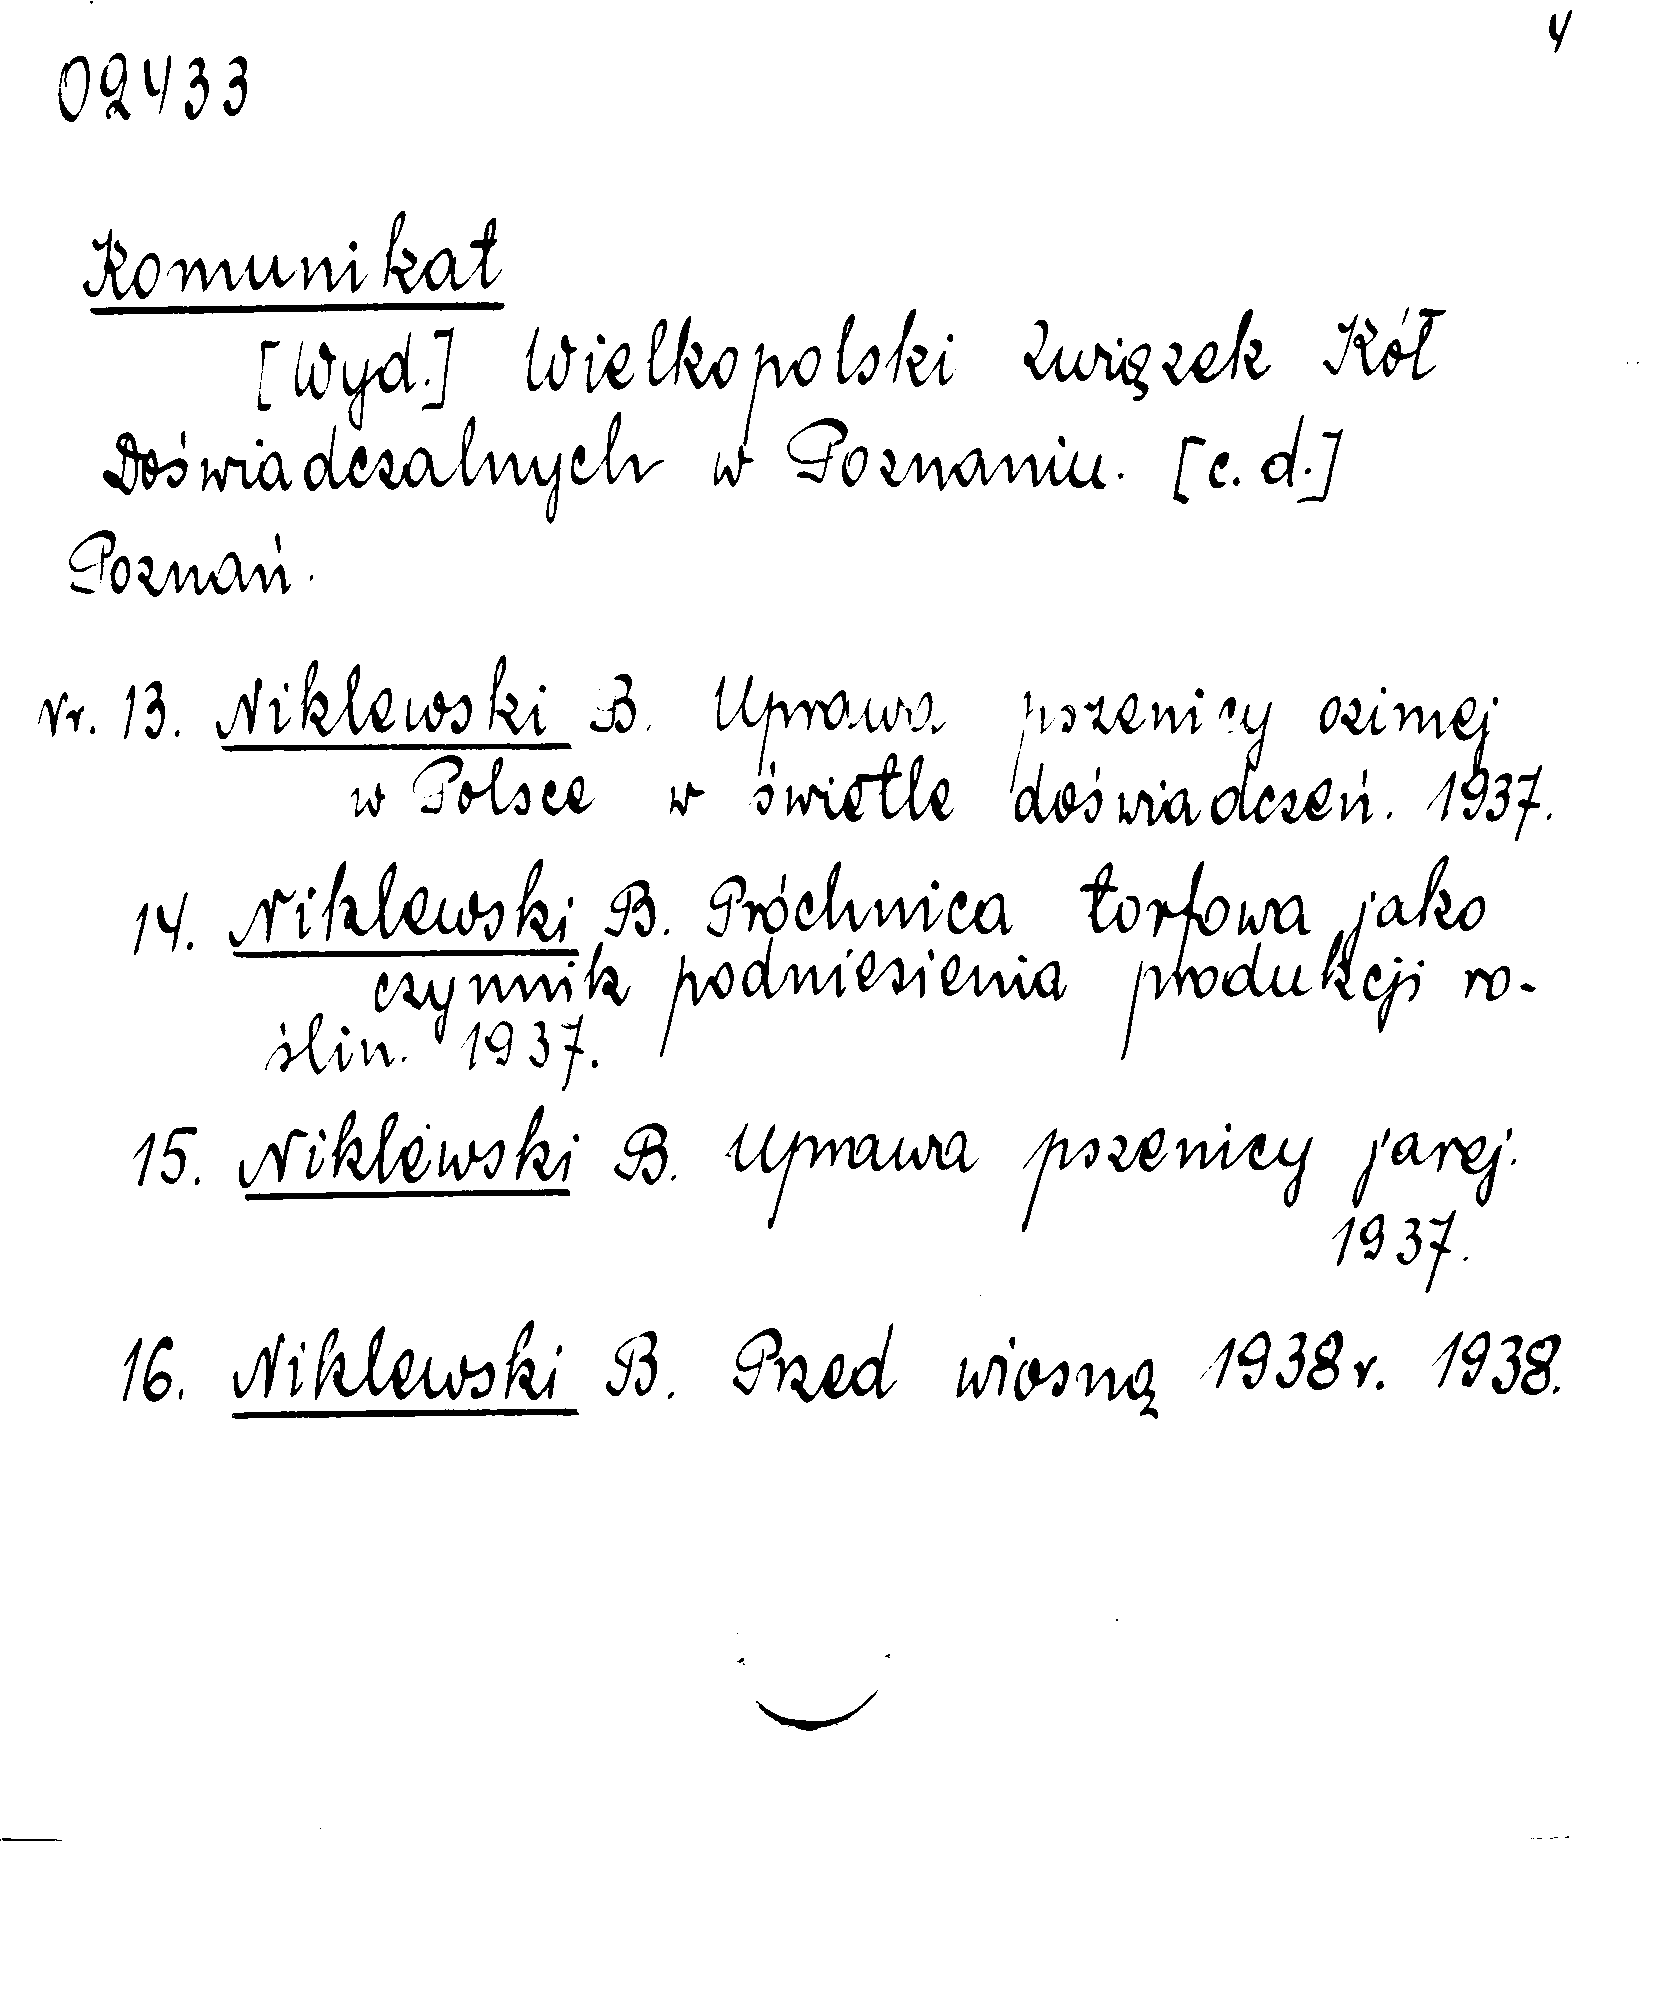 4
02433
Komunikat
[Wyd.] Wielkopolski Związek Kół
Doświadczalnych w Poznaniu. [c.d.]
Poznań.
Nr. 13. Niklewski B. Uprawa pszenicy ozimej
w Polsce w świetle doświadczeń. 1937.
14. Niklewski B. Próchnica torfowa jako
czynnik podniesienia produkcji ro-
ślin. 1937.
15. Niklewski B. Uprawa pszenicy jarej.
1937.
16. Niklewski B. Przed wiosną 1938 r. 1938.